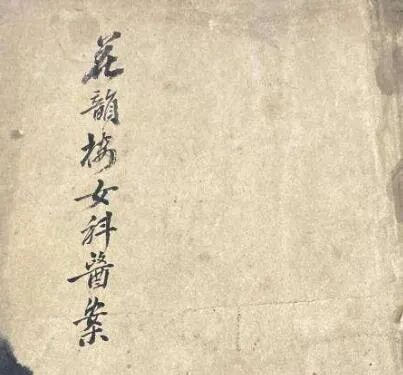 花韻樓女科醫案